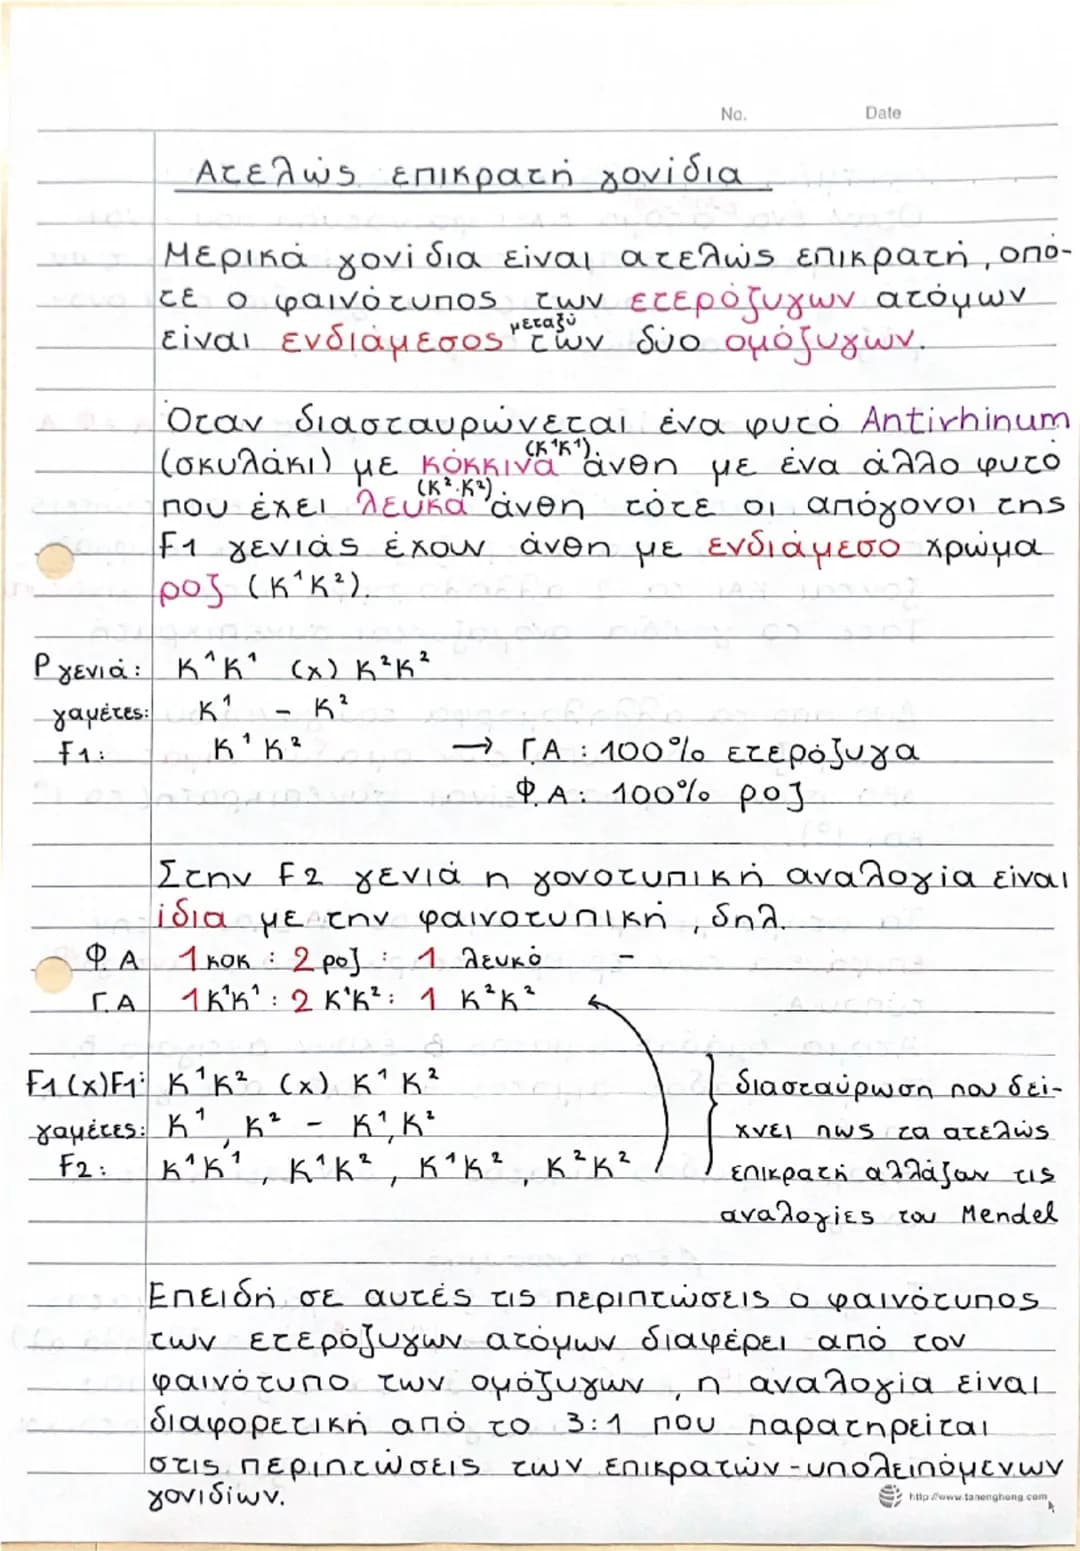 No. Date
Ατελώς επικρατή γονίδια
Μερικά γονίδια είναι ατελώς επικρατή, οπό-
τε ο φαινότυπος των ετερόζυγων ατόμων
είναι ενδιάμεσος μεταξύ των δύο ομόζυγων.
Όταν διασταυρώνεται ένα φυτό Antirhinum
(σκυλάκι) με κόκκινα (Κ¹Κ¹) άνθη με ένα άλλο φυτό
που έχει λευκά (Κ².Κ²) άνθη τότε οι απόγονοι της
F1 γενιάς έχουν άνθη με ενδιάμεσο χρώμα
ροζ (Κ¹Κ²).
P γενιά: Κ¹Κ¹ (x) Κ²Κ²
γαμέτες: Κ¹ - Κ²
F1: Κ¹Κ² → Γ.Α : 100% ετερόζυγα
Φ.Α: 100% ροζ
Στην F2 γενιά η γονοτυπική αναλογία είναι
ίδια με την φαινοτυπική, δηλ.
Φ.Α 1 κοκ : 2 ροζ : 1 λευκό -
Γ.Α 1Κ¹Κ¹ : 2 Κ¹Κ² : 1 Κ²Κ²
F1(x)F1: Κ¹Κ² (x) Κ¹Κ²
γαμέτες: Κ¹, Κ² - Κ¹, Κ²
F2: Κ¹Κ¹, Κ¹Κ², Κ¹Κ², Κ²Κ²
διασταύρωση που δεί-
χνει πως τα ατελώς
επικρατή αλλάζουν τις
αναλογίες του Mendel
Επειδή σε αυτές τις περιπτώσεις ο φαινότυπος
των ετερόζυγων ατόμων διαφέρει από τον
φαινότυπο των ομόζυγων, η αναλογία είναι
διαφορετική από το 3:1 που παρατηρείται
στις περιπτώσεις των επικρατών-υπολειπόμενων
γονιδίων.
http://www.tanenghong.com